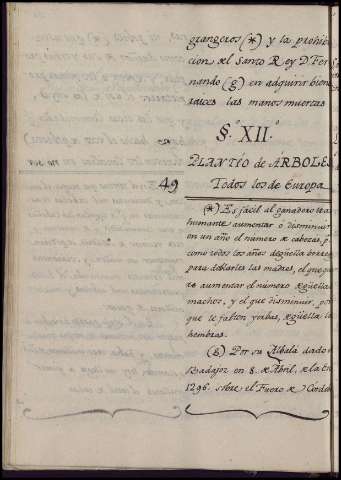 grangeros (*) y la prohibi
cion del Santo Rey D. Fer
nando (g) en adquirir bien
raices las manos muertas
§.º XII.º
PLANTÍO de ÁRBOLES
49
Todos los de Europa
(*) Es fácil al ganadero tras
humante aumentar ó disminuir
en un año el número de cabezas, p.
como todos los años degüella borreg
para doblarles las madres, el que qui
re aumentar el número degüella
machos, y el que disminuir, por
que le falten yerbas, degüella
hembras.
(g) Por su Albala dado
Badajoz en 8. de Abril, de la Er
1296. sobre el Fuero de Cordob